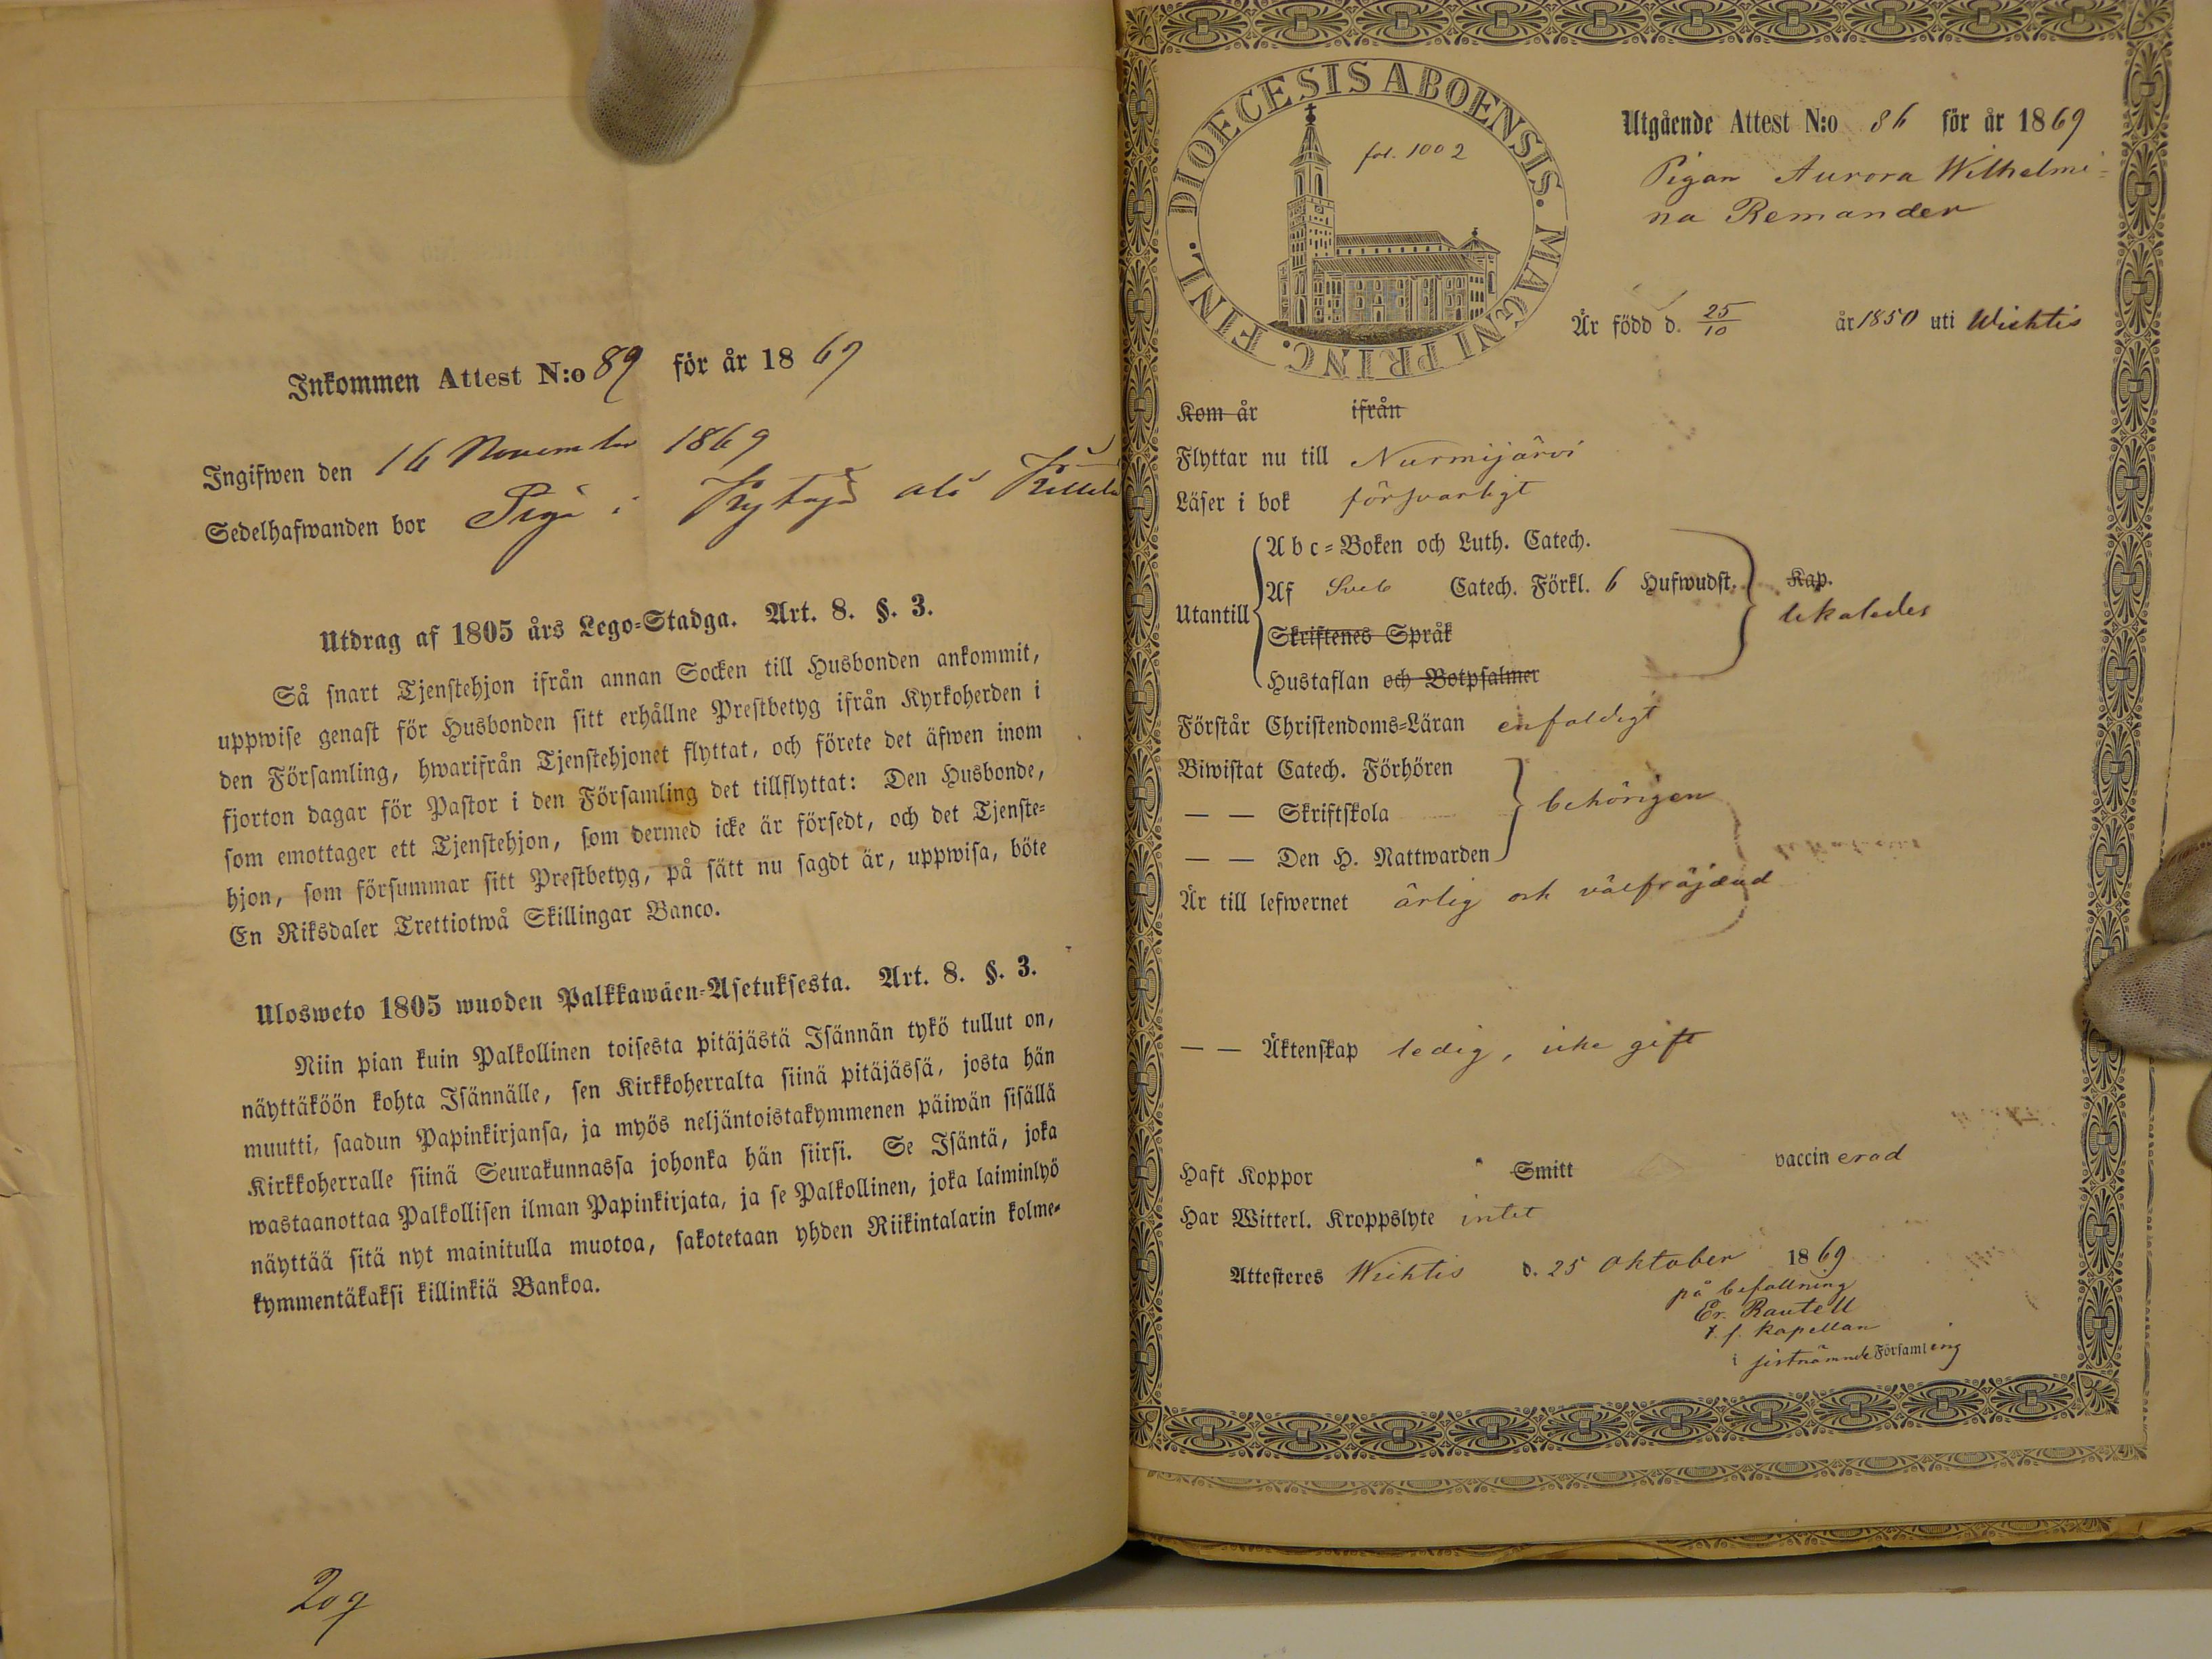 Inkommen Attest N:o 89 för år 1869
Ingifwen den 16 November 1869
Sedelhafwanden bor Piga i Kytäjä
Utdrag af 1805 års Lego=Stadga. Art. 8. §. 3.
Så snart Tjenstehjon ifrån annan Socken till Husbonden ankommit,
uppwise genast för Husbonden sitt erhållne Prestbetyg ifrån Kyrkoherden i
den Församling, hwarifrån Tjenstehjonet flyttat, och förete det äfwen inom
fjorton dagar för Pastor i den Församling det tillflyttat: Den Husbonde,
som emottager ett Tjenstehjon, som dermed icke är försedt, och det Tjenste=
hjon, som försummar sitt Prestbetyg, på sätt nu sagdt är, uppwisa, böte
En Riksdaler Trettiotwå Skillingar Banco.
Ulosweto 1805 wuoden Palkkawäen=Asetuksesta. Art. 8. §. 3.
Niin pian kuin Palkollinen toisesta pitäjästä Isännän tykö tullut on,
näyttäköön kohta Isännälle, sen Kirkkoherralta siinä pitäjässä, josta hän
muutti, saadun Papinkirjansa, ja myös neljäntoistakymmenen päiwän sisällä
Kirkkoherralle siinä Seurakunnassa johonka hän siirsi. Se Isäntä, joka
wastaanottaa Palkollisen ilman Papinkirjata, ja se Palkollinen, joka laiminlyö
näyttää sitä nyt mainitulla muotoa, sakotetaan yhden Riikintalarin kolme=
kymmentäkaksi killinkiä Bankoa.
209
DIOECESIS ABOENSIS. MAGNI PRINC. FINL.
fol. 1002
Utgående Attest N:o 86 för år 1869
Pigan Aurora Wilhelmi=
na Remander
Är född d. 25/10 år 1850 uti Wichtis
Kom år ifrån
Flyttar nu till Nurmijärvi
Läser i bok försvarligt
Utantill
Abc=Boken och Luth. Catech.
Af Sveb Catech. Förkl. 6 Hufwudst. Kap.
likaledes
Skriftenes Språk
Hustaflan och Botpsalmer
Förstår Christendoms=Läran enfaldigt
Biwistat Catech. Förhören
— — Skriftskola behörigen
— — Den H. Nattwarden
Är till lefwernet ärlig och välfräjdad
— — Äktenskap ledig, icke gift
Haft Koppor Smitt vaccinerad
Har Witterl. Kroppslyte intet
Attesteres Wichtis d. 25 Oktober 1869
på befallning
Er. Rautell
t. f. kapellan
i sistnämnde Församling